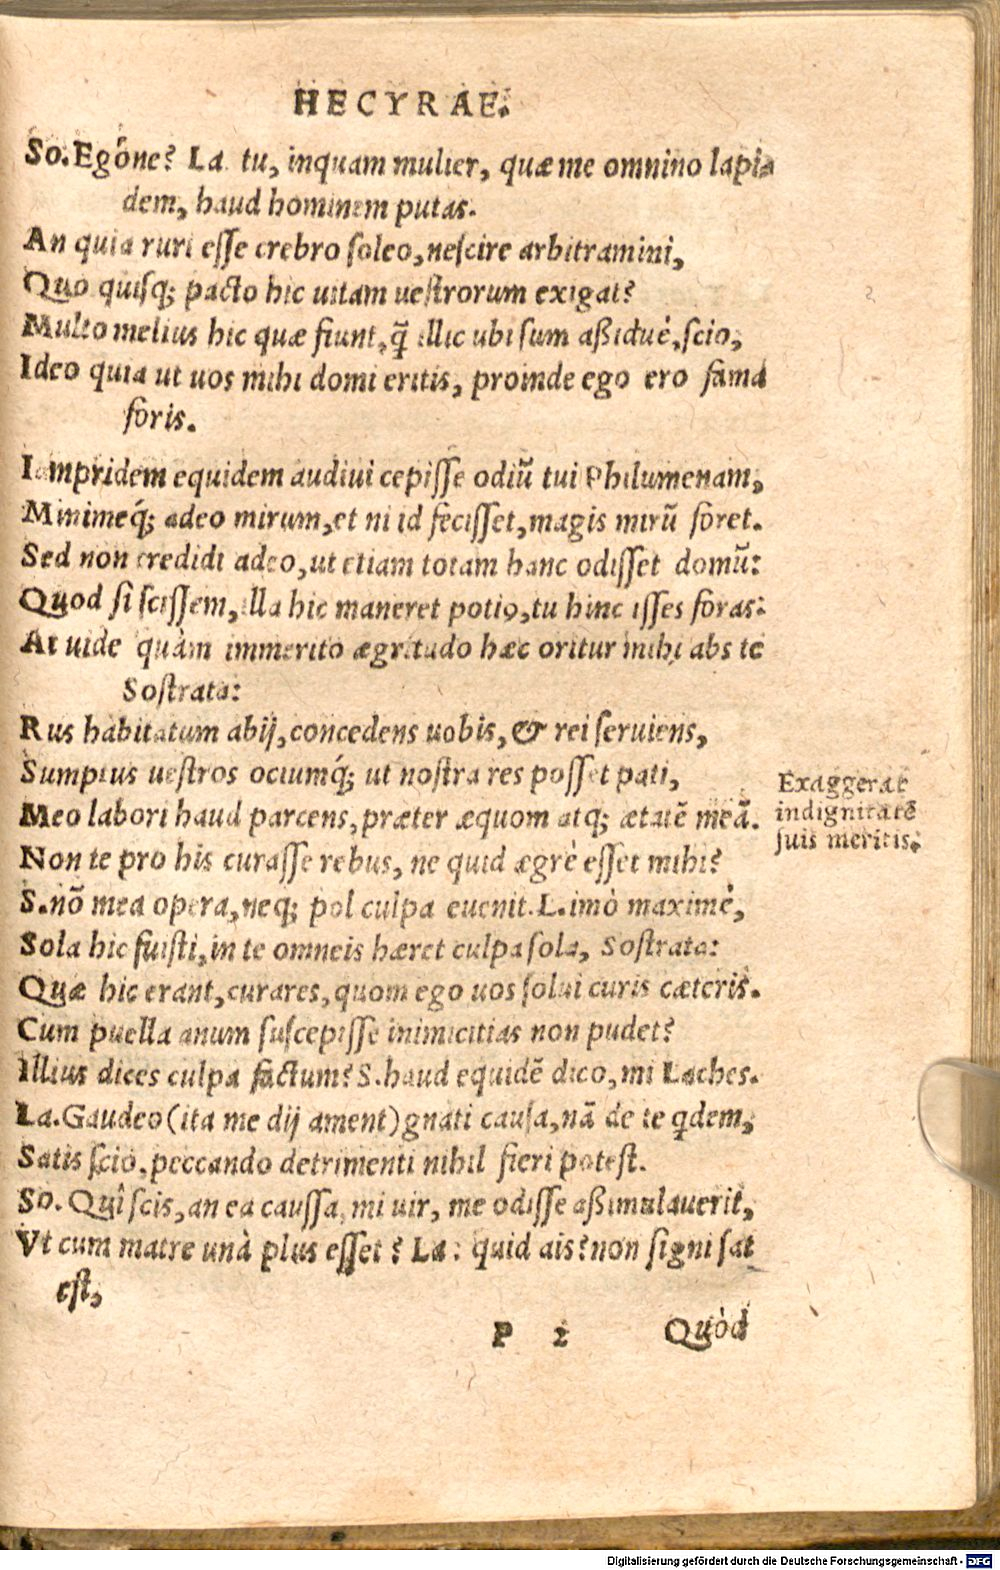 HECYRAE.
So. Egóne? La. tu, inquam mulier, quæ me omnino lapi-
dem, haud hominem putas.
An quia ruri esse crebro soleo, nescire arbitramini,
Quo quisq; pacto hic uitam uestrorum exigat?
Multo melius hic quæ fiunt, q̃ illic ubi sum aßiduè, scio,
Ideo quia ut uos mihi domi eritis, proinde ego ero fama
foris.
Iampridem equidem audiui cepisse odiũ tui Philumenam,
Minimeq́; adeo mirum, et ni id fecisset, magis mirũ foret.
Sed non credidi adeo, ut etiam totam hanc odisset domũ:
Quod si scissem, illa hic maneret potiꝰ, tu hinc isses foras:
At uide quàm immerito ægritudo hæc oritur mihi abs te
Sostrata:
Rus habitatum abij, concedens uobis, & rei seruiens,
Sumptus uestros ociumq́; ut nostra res posset pati,
Meo labori haud parcens, præter æquom atq; ætatẽ meã.
Non te pro his curasse rebus, ne quid ægrè esset mihi?
S. nõ mea opera, neq; pol culpa euenit. L. imò maximè,
Sola hic fuisti, in te omneis hæret culpa sola, Sostrata:
Quæ hic erant, curares, quom ego uos solui curis cæteris.
Cum puella anum suscepisse inimicitias non pudet?
Illius dices culpa factum? S. haud equidẽ dico, mi Laches.
La. Gaudeo (ita me dij ament) gnati causa, nã de te qdem,
Satis scio, peccando detrimenti nihil fieri potest.
So. Quî scis, an ea caussa, mi uir, me odisse aßimulauerit,
Vt cum matre unà plus esset? La. quid ais? non signi sat
est,
P 2 Quòd
Exaggerat
indignitatẽ
suis meritis.
Digitalisierung gefördert durch die Deutsche Forschungsgemeinschaft - DFG